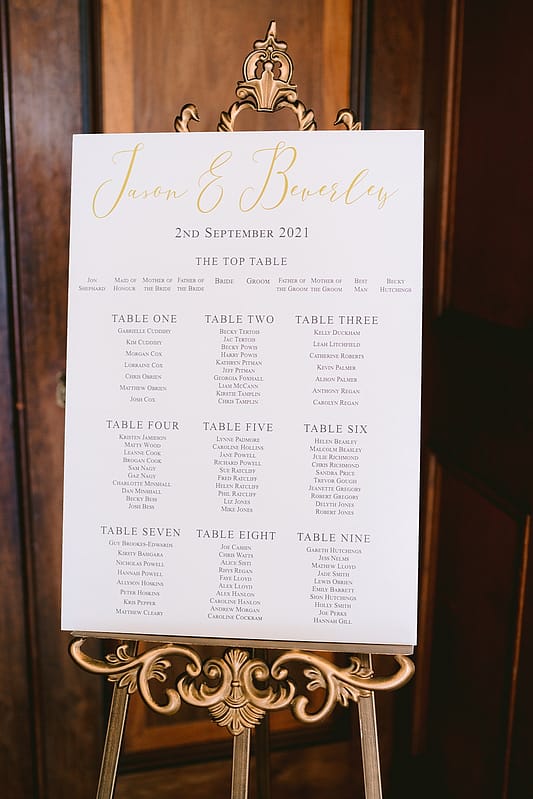 Jason & Beverley
2nd September 2021
THE TOP TABLE
Jon Shephard
Maid of Honour
Mother of the Bride
Father of the Bride
Bride
Groom
Father of the Groom
Mother of the Groom
Best Man
Becky Hutchings
TABLE ONE
Gabrielle Cuddihy
Kim Cuddihy
Morgan Cox
Lorraine Cox
Chris Obrien
Matthew Obrien
Josh Cox
TABLE TWO
Becky Tertois
Jac Tertois
Becky Powis
Harry Powis
Kathryn Pitman
Jeff Pitman
Georgia Foxhall
Liam McCann
Kirstie Tamplin
Chris Tamplin
TABLE THREE
Kelly Duckham
Leah Litchfield
Catherine Roberts
Kevin Palmer
Alison Palmer
Anthony Regan
Carolyn Regan
TABLE FOUR
Kristen Jamieson
Matty Wood
Leanne Cook
Brogan Cook
Sam Nagy
Gaz Nagy
Charlotte Minshall
Dan Minshall
Becky Bess
Josh Bess
TABLE FIVE
Lynne Padmore
Caroline Hollins
Jane Powell
Richard Powell
Sue Ratcliff
Fred Ratcliff
Helen Ratcliff
Phil Ratcliff
Liz Jones
Mike Jones
TABLE SIX
Helen Beasley
Malcolm Beasley
Julie Richmond
Chris Richmond
Sandra Price
Trevor Gough
Jeanette Gregory
Robert Gregory
Delyth Jones
Robert Jones
TABLE SEVEN
Guy Brookes-Edwards
Kirsty Bahgara
Nicholas Powell
Hannah Powell
Allyson Hoskins
Peter Hoskins
Kris Pepper
Matthew Cleary
TABLE EIGHT
Joe Cashin
Chris Watts
Alice Sisti
Rhys Regan
Faye Lloyd
Alex Lloyd
Alex Hanlon
Caroline Hanlon
Andrew Morgan
Caroline Cockram
TABLE NINE
Gareth Hutchings
Jess Nelms
Mathew Lloyd
Jade Smith
Lewis Obrien
Emily Barrett
Sion Hutchings
Holly Smith
Joe Perks
Hannah Gill